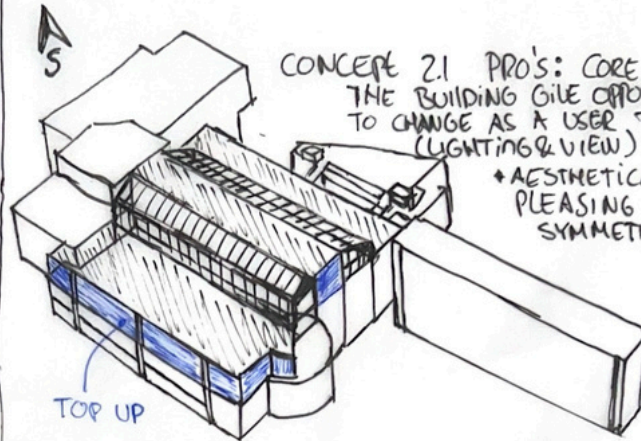 S
CONCEPT 2.1 PRO'S: CORE
THE BUILDING GIVE OPPO
TO CHANGE AS A USER
(LIGHTING & VIEW)
+ AESTHETICA
PLEASING
SYMMET
TOP UP